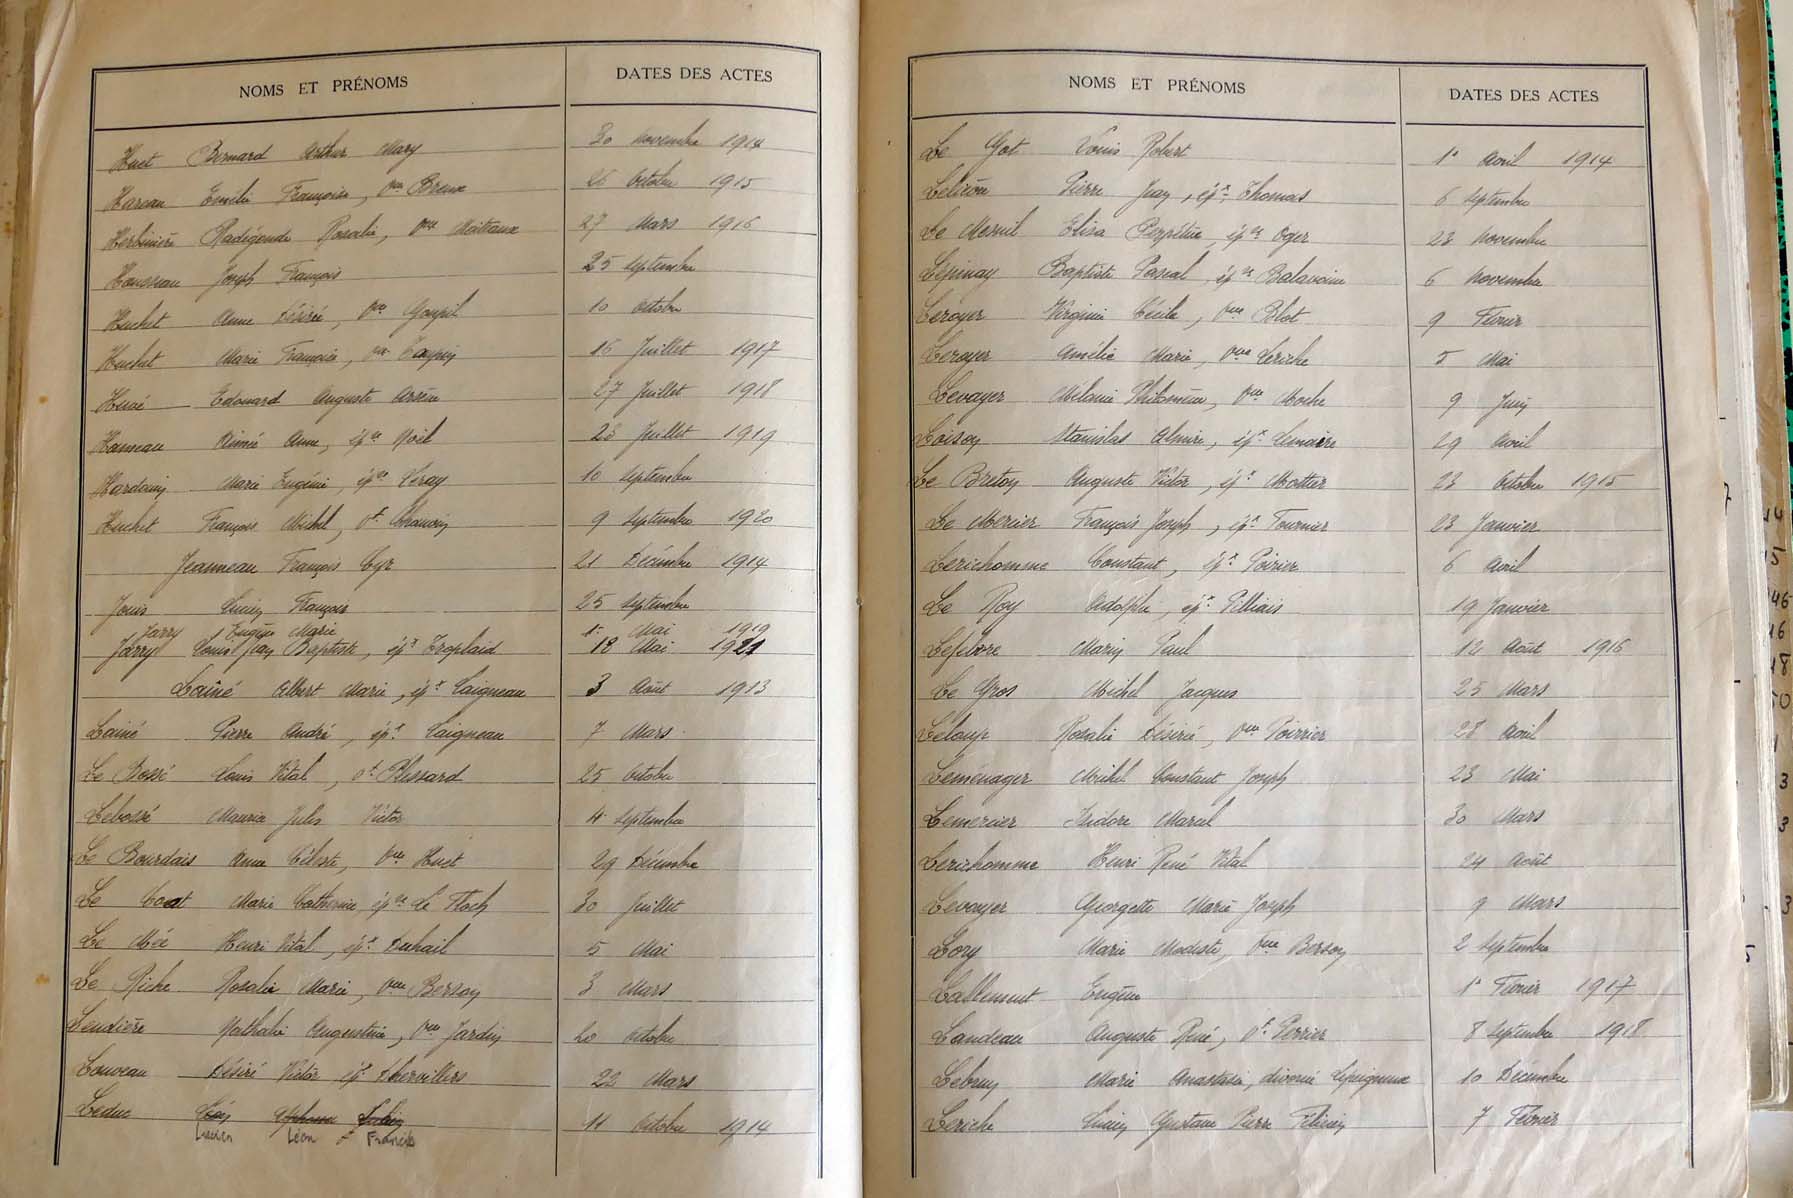 NOMS ET PRÉNOMS DATES DES ACTES
Huet Bernard Arthur Mary 30 Novembre 1914
Hareau Emélie Françoise, vve Breux 26 Octobre 1915
Herbinière Radégonde Rosalie, vve Moiteaux 27 Mars 1916
Housseau Joseph François 25 Septembre
Huchet Anne Désirée, vve Goupil 10 Octobre
Huchet Marie Françoise, vve 16 Juillet 1917
Huvé Edouard Auguste Arsène 27 Juillet 1918
Hameau Aimée Anne, épse Noël 23 Juillet 1919
Hardouin Marie Eugénie, épse Leray 10 Septembre
Huchet François Michel, vf 9 Septembre 1920
Jeanneau François Cyr 21 Décembre 1914
Jouis Lucien François 25 Septembre
Jarry Eugène Marie 1er Mai 1919
Jarry Louis Jean Baptiste, épx Froplaid 18 Mai 1921
Lainé Albert Marie, épx Laigneau 3 Août 1913
Lainé Pierre André, épx Laigneau 7 Mars
Le Bossé Louis Vital, vf Plessard 25 Octobre
Lebossé Maurice Jules Victor 4 Septembre
Le Bourdais Anne Céleste, vve Huet 29 Décembre
Le Coat Marie Catherine épse Le Floch 30 Juillet
Le Mée Henri Vital, épx Duhail 5 Mai
Le Riche Rosalie Marie, vve Berson 3 Mars
Lendière Nathalie Augustine, vve Jardin 20 Octobre
Louveau Désiré Victor épx Dhervillers 22 Mars
Leduc 11 Octobre 1914
Lucien Léon F Francis
NOMS ET PRÉNOMS DATES DES ACTES
Le Got Louis Robert 1er Avril 1914
Pierre Jean, épx Thomas 6 Septembre
Le Mesnil Elisa Perpétue, épse Oger 23 Novembre
Lépinay Baptiste Pascal, épse Balavoine 6 Novembre
Leroyer Virginie Cécile, vve Blot 9 Février
Leroyer Amélie Marie, vve Leriche 5 Mai
Levoyer Mélanie Philomène, vve Moche 9 Juin
Loison Stanislas Almire, épx Lemoière 29 Avril
Le Breton Auguste Victor, épx Mottier 23 Octobre 1915
Le Mercier François Joseph, épx Tournier 23 Janvier
Lerichomme Constant, épx Poirier 6 Avril
Le Roy Adolphe, épx Pilliais 19 Janvier
Lefebvre Marin Paul 12 Août 1916
Le Gros Michel Jacques 25 Mars
Leloup Rosalie Désirée, vve Poirrier 28 Avril
Leménager Michel Constant Joseph 23 Mai
Lemercier Isidore Marcel 30 Mars
Lerichomme Henri René Vital 24 Août
Levoyer Georgette Marie Joseph 9 Mars
Lory Marie Modeste, vve Berson 2 Septembre
Lallemant Eugène 1er Février 1917
Landeau Auguste René, vf Perrier 8 Septembre 1918
Lebrun Marie Anastasie, divorcée 10 Décembre
Leriche Lucien Gustave Pierre Félicien 7 Février